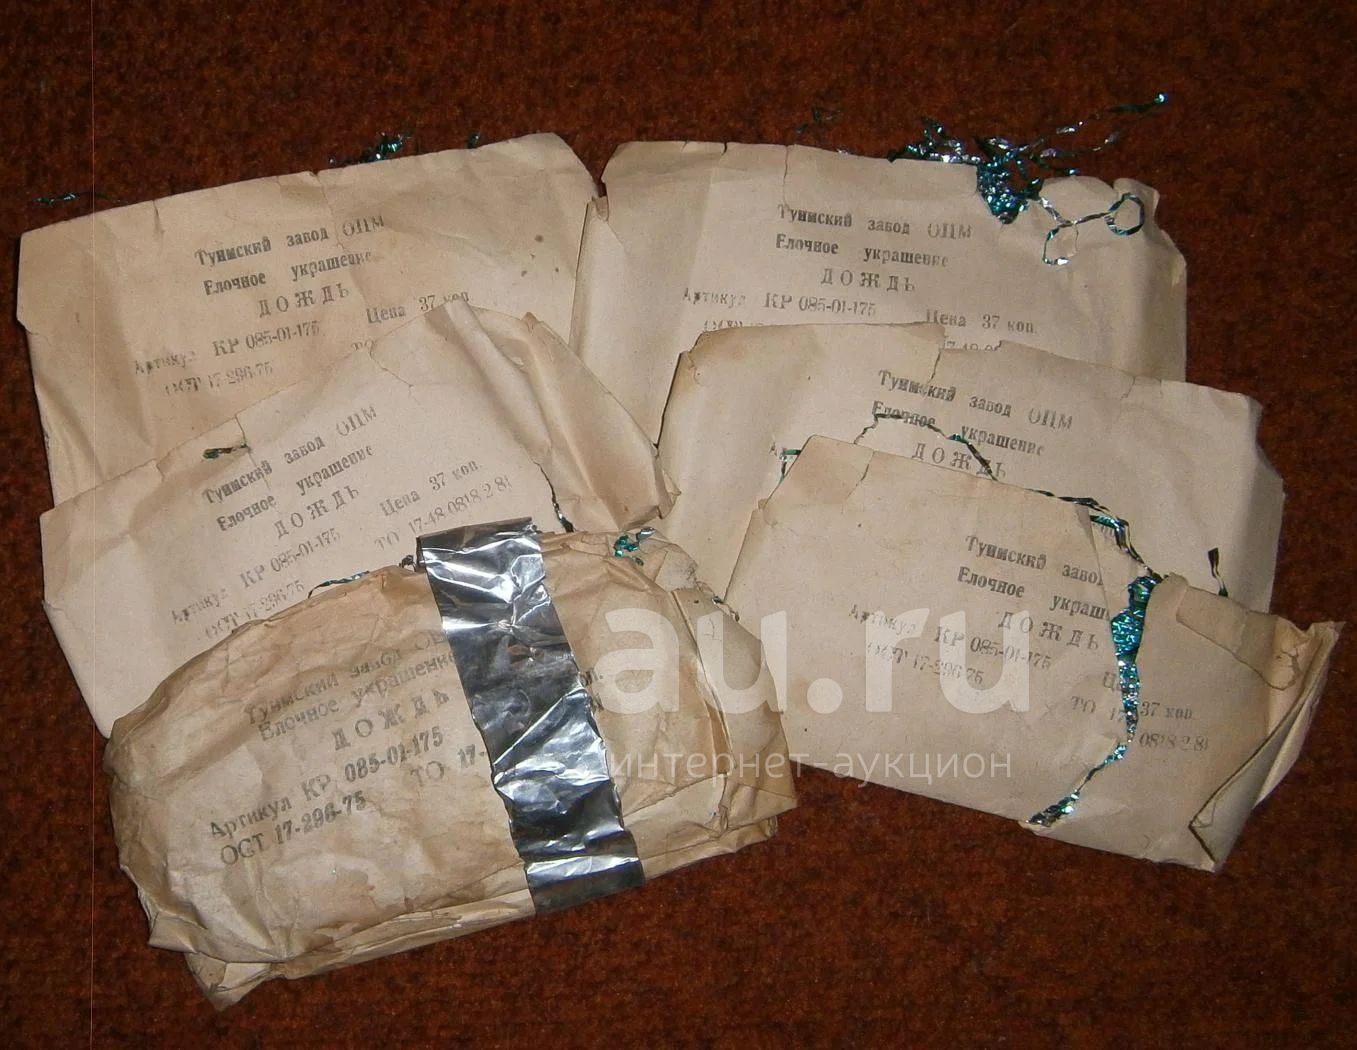 Туимский завод ОЦМ
Елочное украшение
ДОЖДЬ
Артикул КР 085-01-175 Цена 37 коп.
ОСТ 17-296-75
Туимский завод ОЦМ
Елочное украшение
ДОЖДЬ
Артикул КР 085-01-175 Цена 37 коп.
Туимский завод ОЦМ
Елочное украшение
ДОЖДЬ
Артикул КР 085-01-175 Цена 37 коп.
ОСТ 17-296-75 ТО 17-48-0818-2-81
Туимский завод ОЦМ
Елочное украшение
ДОЖДЬ
Туимский завод
Елочное украш
ДОЖДЬ
Артикул КР 085-01-175 37 коп.
ОСТ 17-296-75 ТО 17 0818-2-81
Туимский завод
Елочное украшение
ДОЖДЬ
Артикул КР 085-01-175
ОСТ 17-296-75 ТО 17-
au.ru
интернет-аукцион